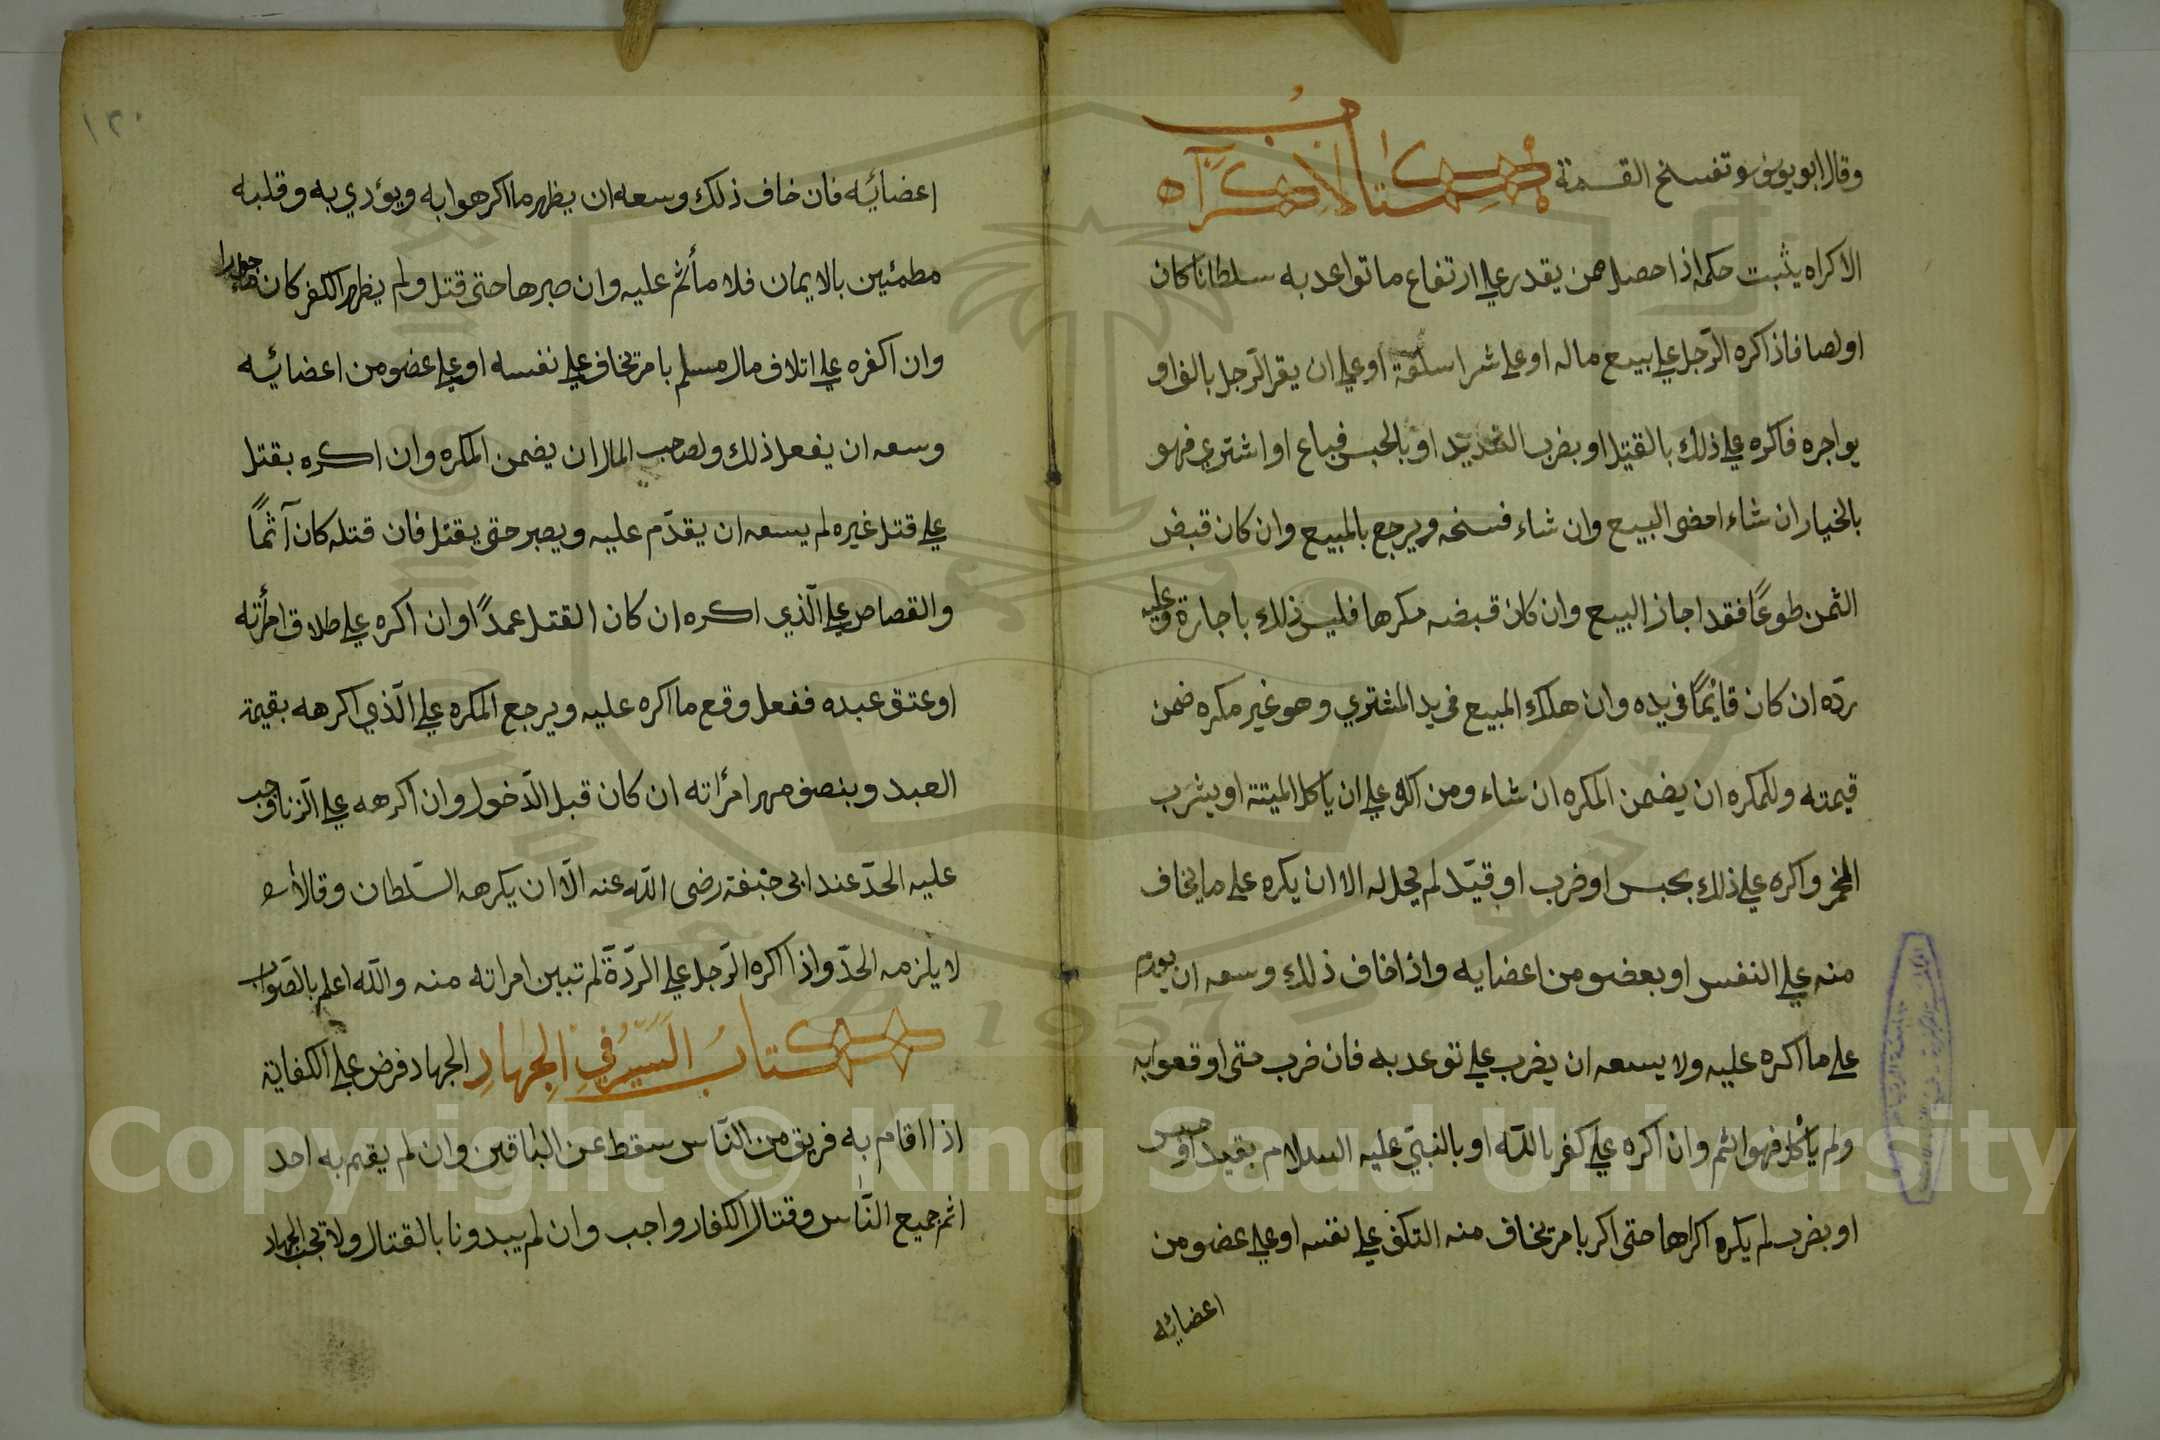 وقال ابو يوسف وتفسخ القسمة كتاب الاكراه
الاكراه يثبت حكمه اذا حصل ممن يقدر على ارتفاع ما تواعد به سلطانا كان
او لصا فاذا اكره الرّجل على بيع ماله او على شرا سلعة او على ان يقر الرّجل بالف او
يواجره فاكره على ذلك بالقتل او بضرب الشديد او بالحبس فباع او اشترى فهو
بالخيار ان شاء امضى البيع وان شاء فسخه ويرجع بالمبيع وان كان قبض
الثمن طوعًا فقد اجاز البيع وان كان قبضه مكرها فليس ذلك باجازة وعليه
ردّه ان كان قائمًا في يده وان هلك المبيع في يد المشتري وهو غير مكره ضمن
قيمته وللمكره ان يضمن المكره ان شاء ومن اكره على ان ياكل الميتة او يشرب
الخمر واكره على ذلك بحبس او ضرب او قيّد لم يحل له الا ان يكره على ما يخاف
منه على النفس او بعضو من اعضايه واذا خاف ذلك وسعه ان يقدم
على ما اكره عليه ولا يسعه ان يضرب على توعد به فان ضرب حتى اوقعوا به
ولم يأكل فهو اثم وان اكره على كفر بالله او بالنبيّ عليه السلام بقيد او حبس
او بضرب لم يكره اكراها حتى اكره بامر يخاف منه التكف على نفسه او على عضو من
اعضائه
١٢٠
اعضائه فان خاف ذلك وسعه ان يظهر ما اكرهوا به ويؤدي به وقلبه
مطمئين بالايمان فلا مأثم عليه وان صبرها حتى قتل ولم يظهر الكفر كان ماجورا
وان اكفره على اتلاف مال مسلم بامر يخاف على نفسه او على عضو من اعضائيه
وسعه ان يفعل ذلك ولصاحب المال ان يضمن المكره وان اكره بقتل
على قتل غيره لم يسعه ان يقدّم عليه ويصبر حتى يقتل فان قتله كان آثمًا
والقصاص على الّذي اكره ان كان القتل عمدًا وان اكره على طلاق امرأته
او عتق عبده ففعل وقع ما اكره عليه ويرجع المكره على الّذي اكرهه بقيمة
العبد وبنصف مهر امرأته ان كان قبل الدّخول وان اكرهه على الزّنا وجب
عليه الحدّ عند ابى حنيفة رضى الله عنه الّا ان يكرهه السّلطان وقالا
لا يلزمه الحدّ واذا اكره الرّجل على الردّة لم تبين امراته منه والله اعلم بالصّواب
كتابُ السِّيَر في الجهادِ الجهاد فرض على الكفاية
اذا اقام به فريق من النّاس سقط عن الباقين وان لم يقم به احد
اثم جميع النّاس وقتال الكفار واجب وان لم يبدونا بالقتال ولا تجب الجهاد
Copyright © King Saud University
1957